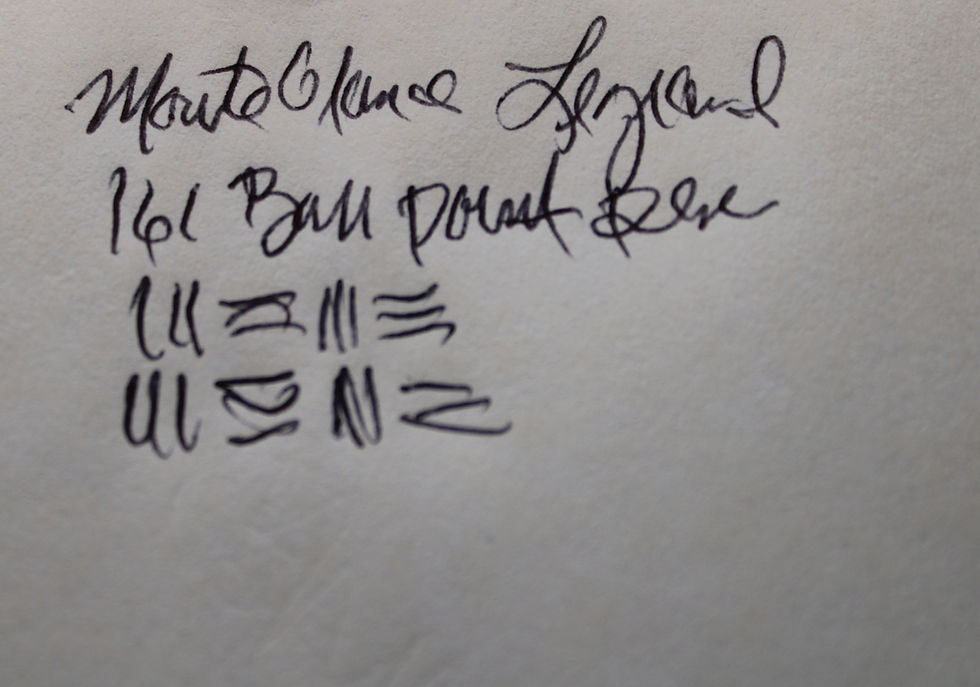 MonteBlance Legrand
161 Ball point Pen